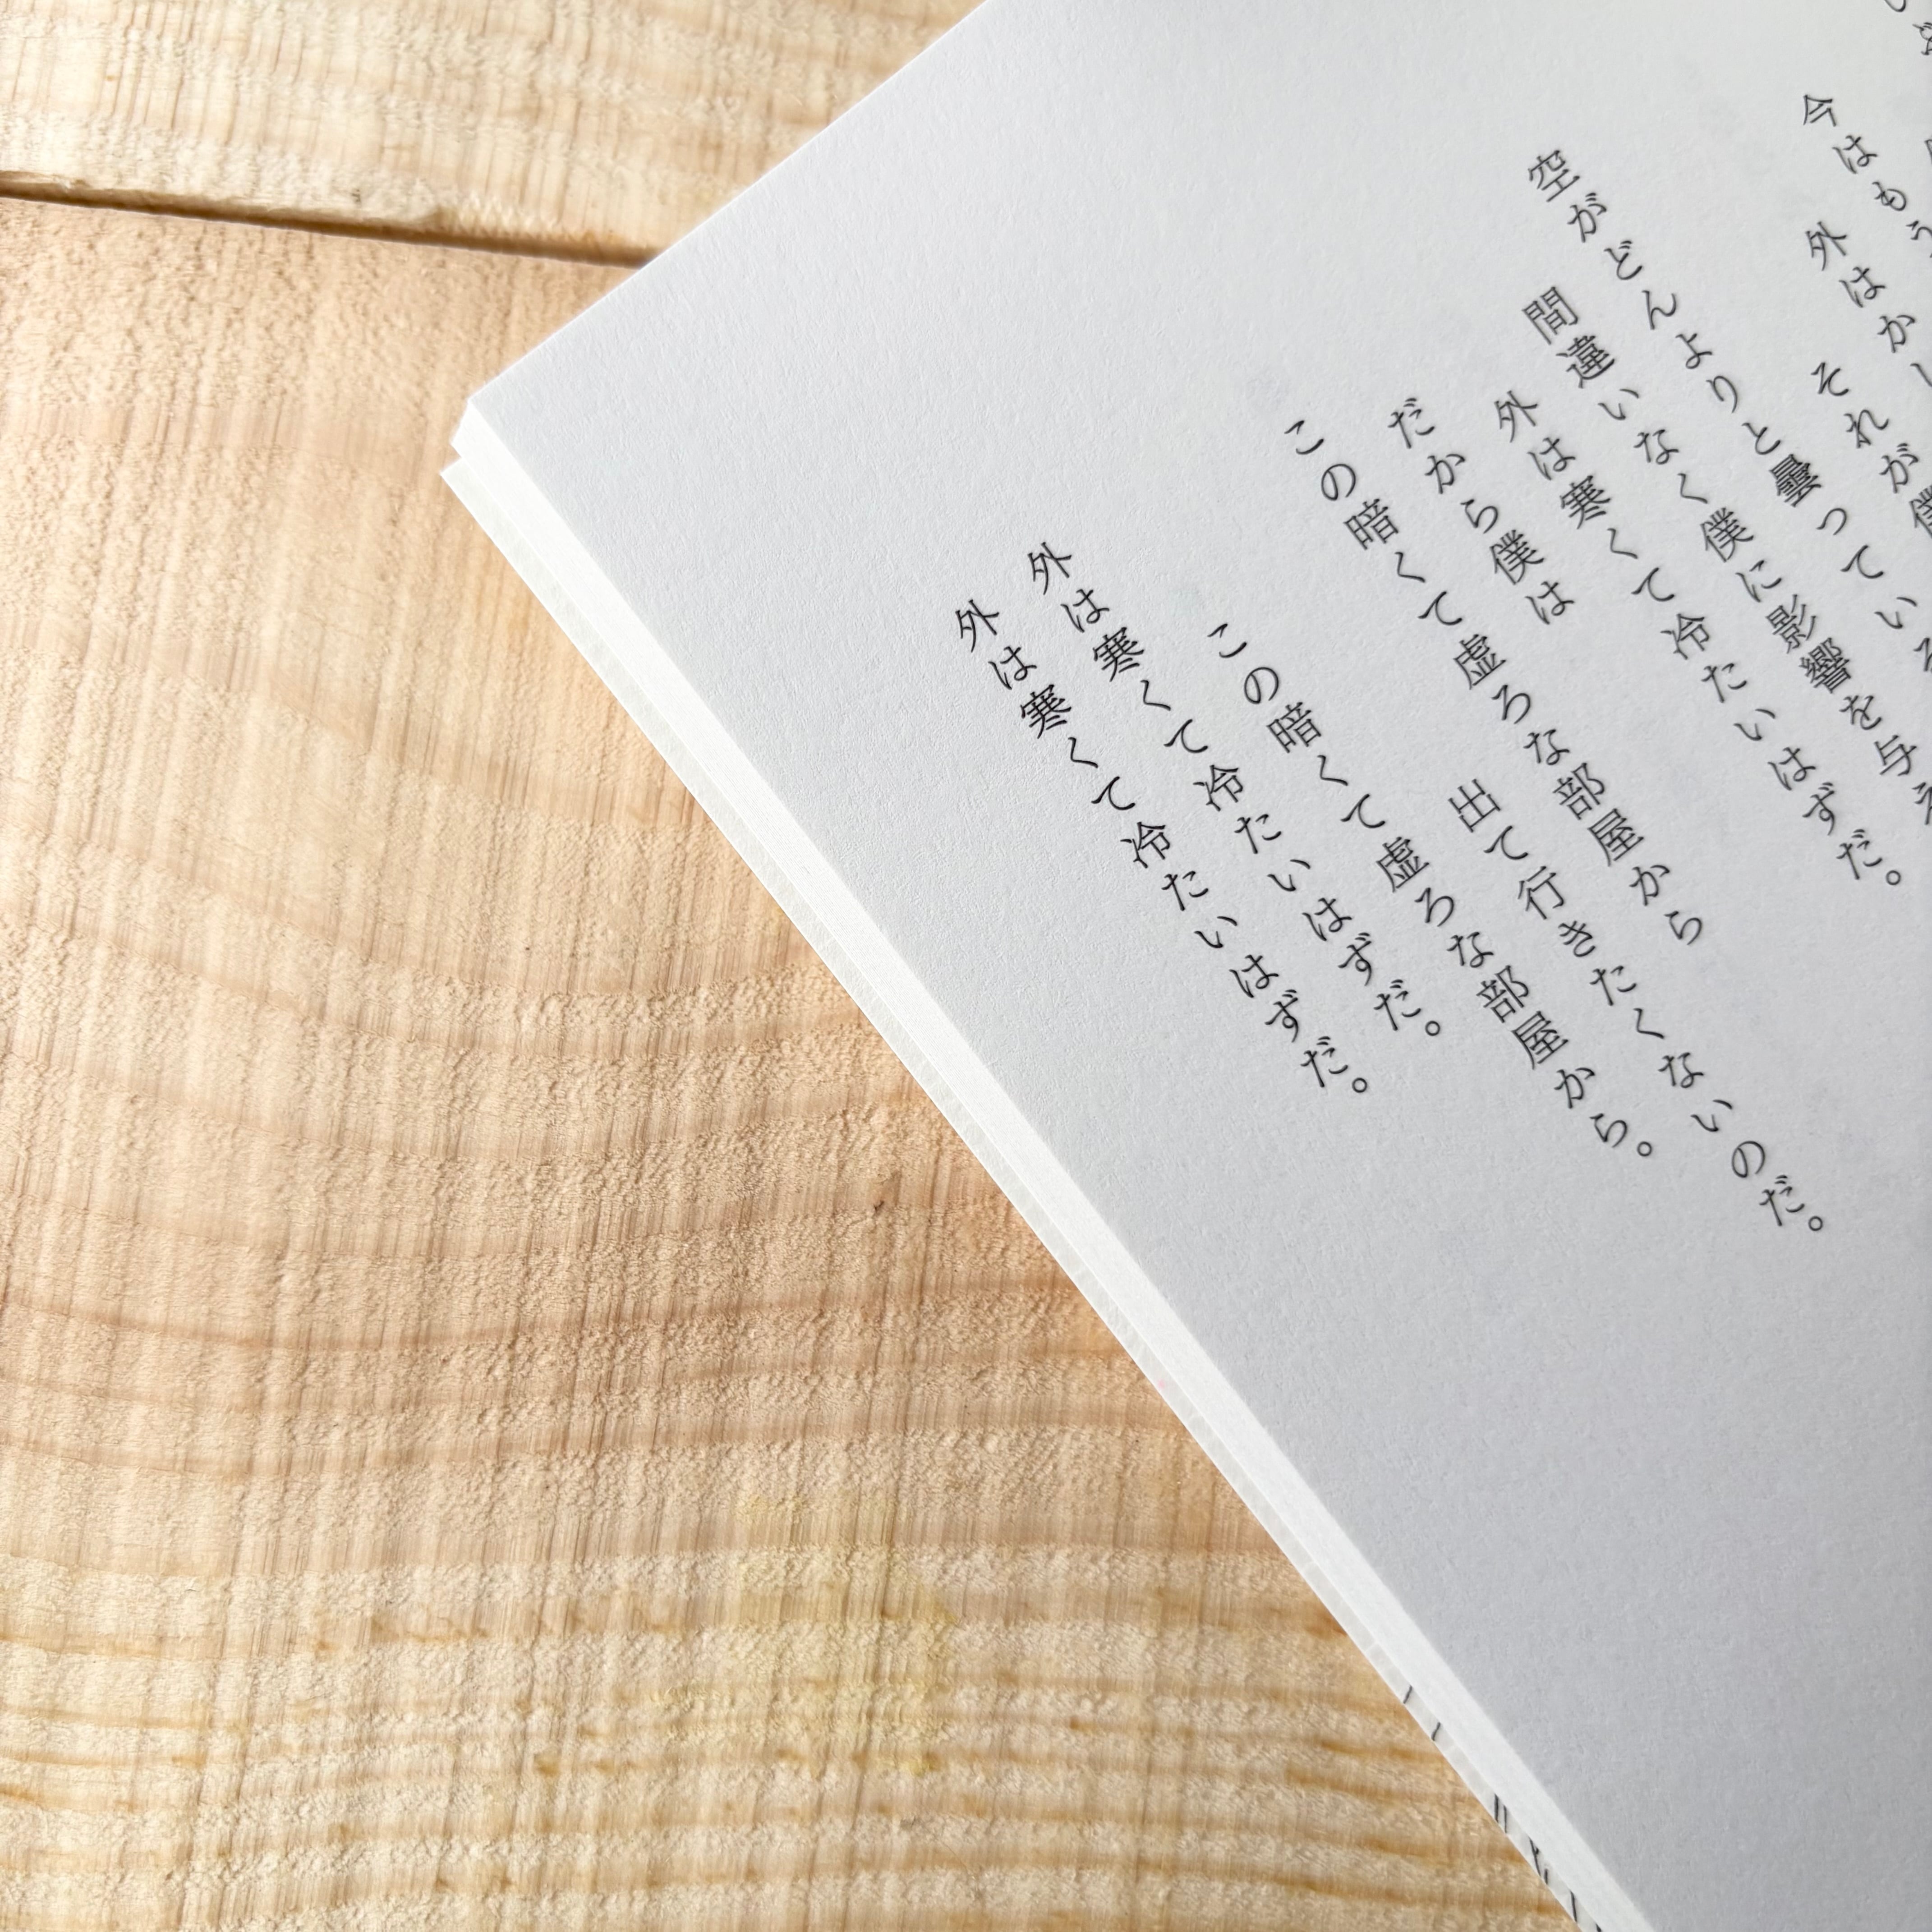 今はもう
外はか
それが僕
空がどんよりと曇ってい
間違いなく僕に影響を与え
外は寒くて冷たいはずだ。
だから僕は
この暗くて虚ろな部屋から
出て行きたくないのだ。
この暗くて虚ろな部屋から。
外は寒くて冷たいはずだ。
外は寒くて冷たいはずだ。